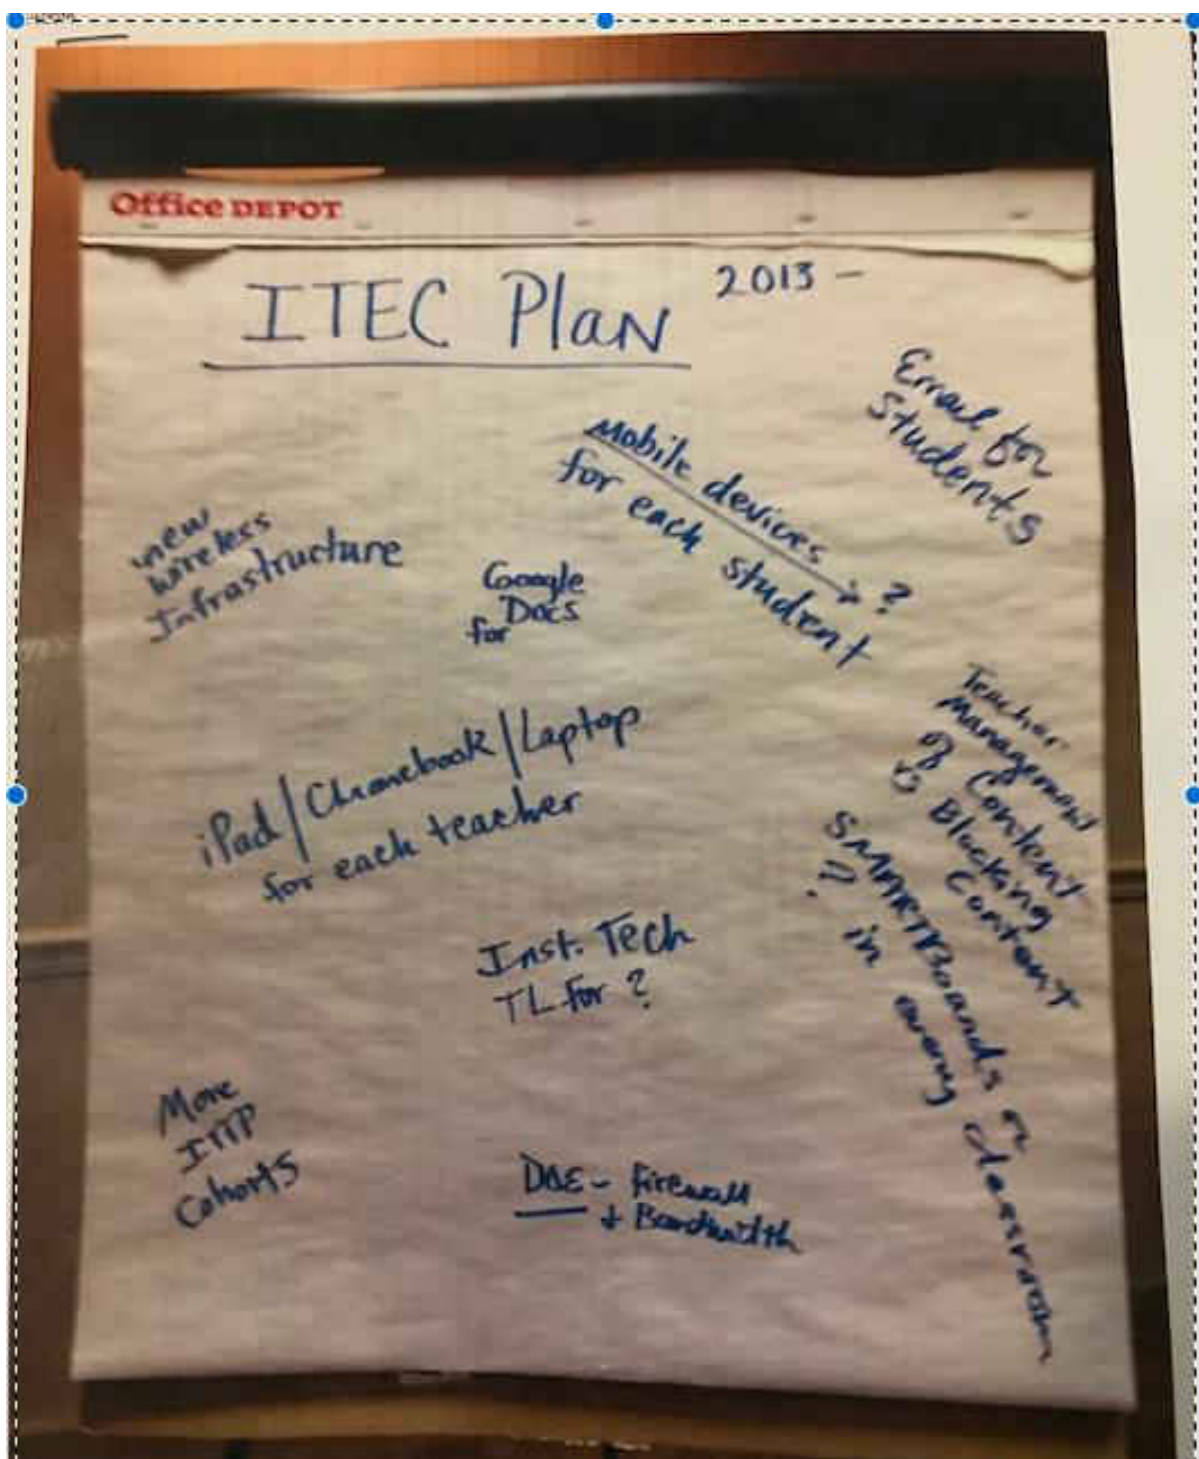 Office DEPOT
ITEC Plan
2013 -
Email for
Students
Mobile devices ?
for each student
new
wireless
Infrastructure
Google
Docs
for
iPad/Chromebook/Laptop
for each teacher
Teacher
Management
of Content
Blocking
Content
SMARTBoards
?? in every classroom
Inst. Tech
TL for ?
More
Cohorts
DOE - Firewall
+ Bandwidth